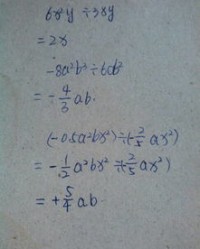 6x²y ÷3xy
=2x
-8a²b²÷6ab²
= -4/3 ab.
(-0.5a²bx²)÷(-2/5 ax²)
= -1/2 a²bx² ÷(2/5 ax²)
= +5/4 ab